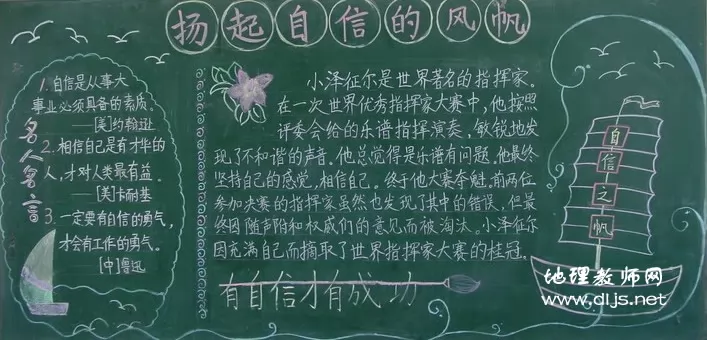 扬起自信的风帆
名人名言
1.自信是从事大
事业必须具备的素质。
——[美]约翰逊
2.相信自己是有才华的
人，才对人类最有益。
——[美]卡耐基
3.一定要有自信的勇气，
才会有工作的勇气。
[中]鲁迅
小泽征尔是世界著名的指挥家。
在一次世界优秀指挥家大赛中，他按照
评委会给的乐谱指挥演奏，敏锐地发
现了不和谐的声音。他总觉得是乐谱有问题，他最终
坚持自己的感觉，相信自己。终于他大赛夺魁。前两位
参加决赛的指挥家虽然也发现了其中的错误，但最
终因随声附和权威们的意见而被淘汰。小泽征尔
因充满自己而摘取了世界指挥家大赛的桂冠。
有自信才有成功
自信之帆
地理教师网
www.dljs.net